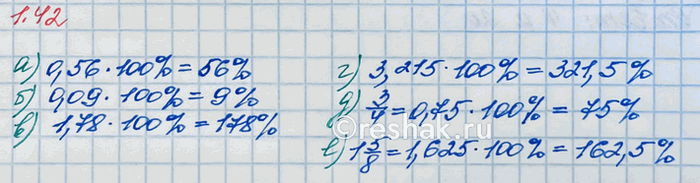 1.42
а) 0,56 · 100% = 56%
б) 0,09 · 100% = 9%
в) 1,78 · 100% = 178%
г) 3,215 · 100% = 321,5%
д) 3/4 = 0,75 · 100% = 75%
е) 1 5/8 = 1,625 · 100% = 162,5%
reshak.ru